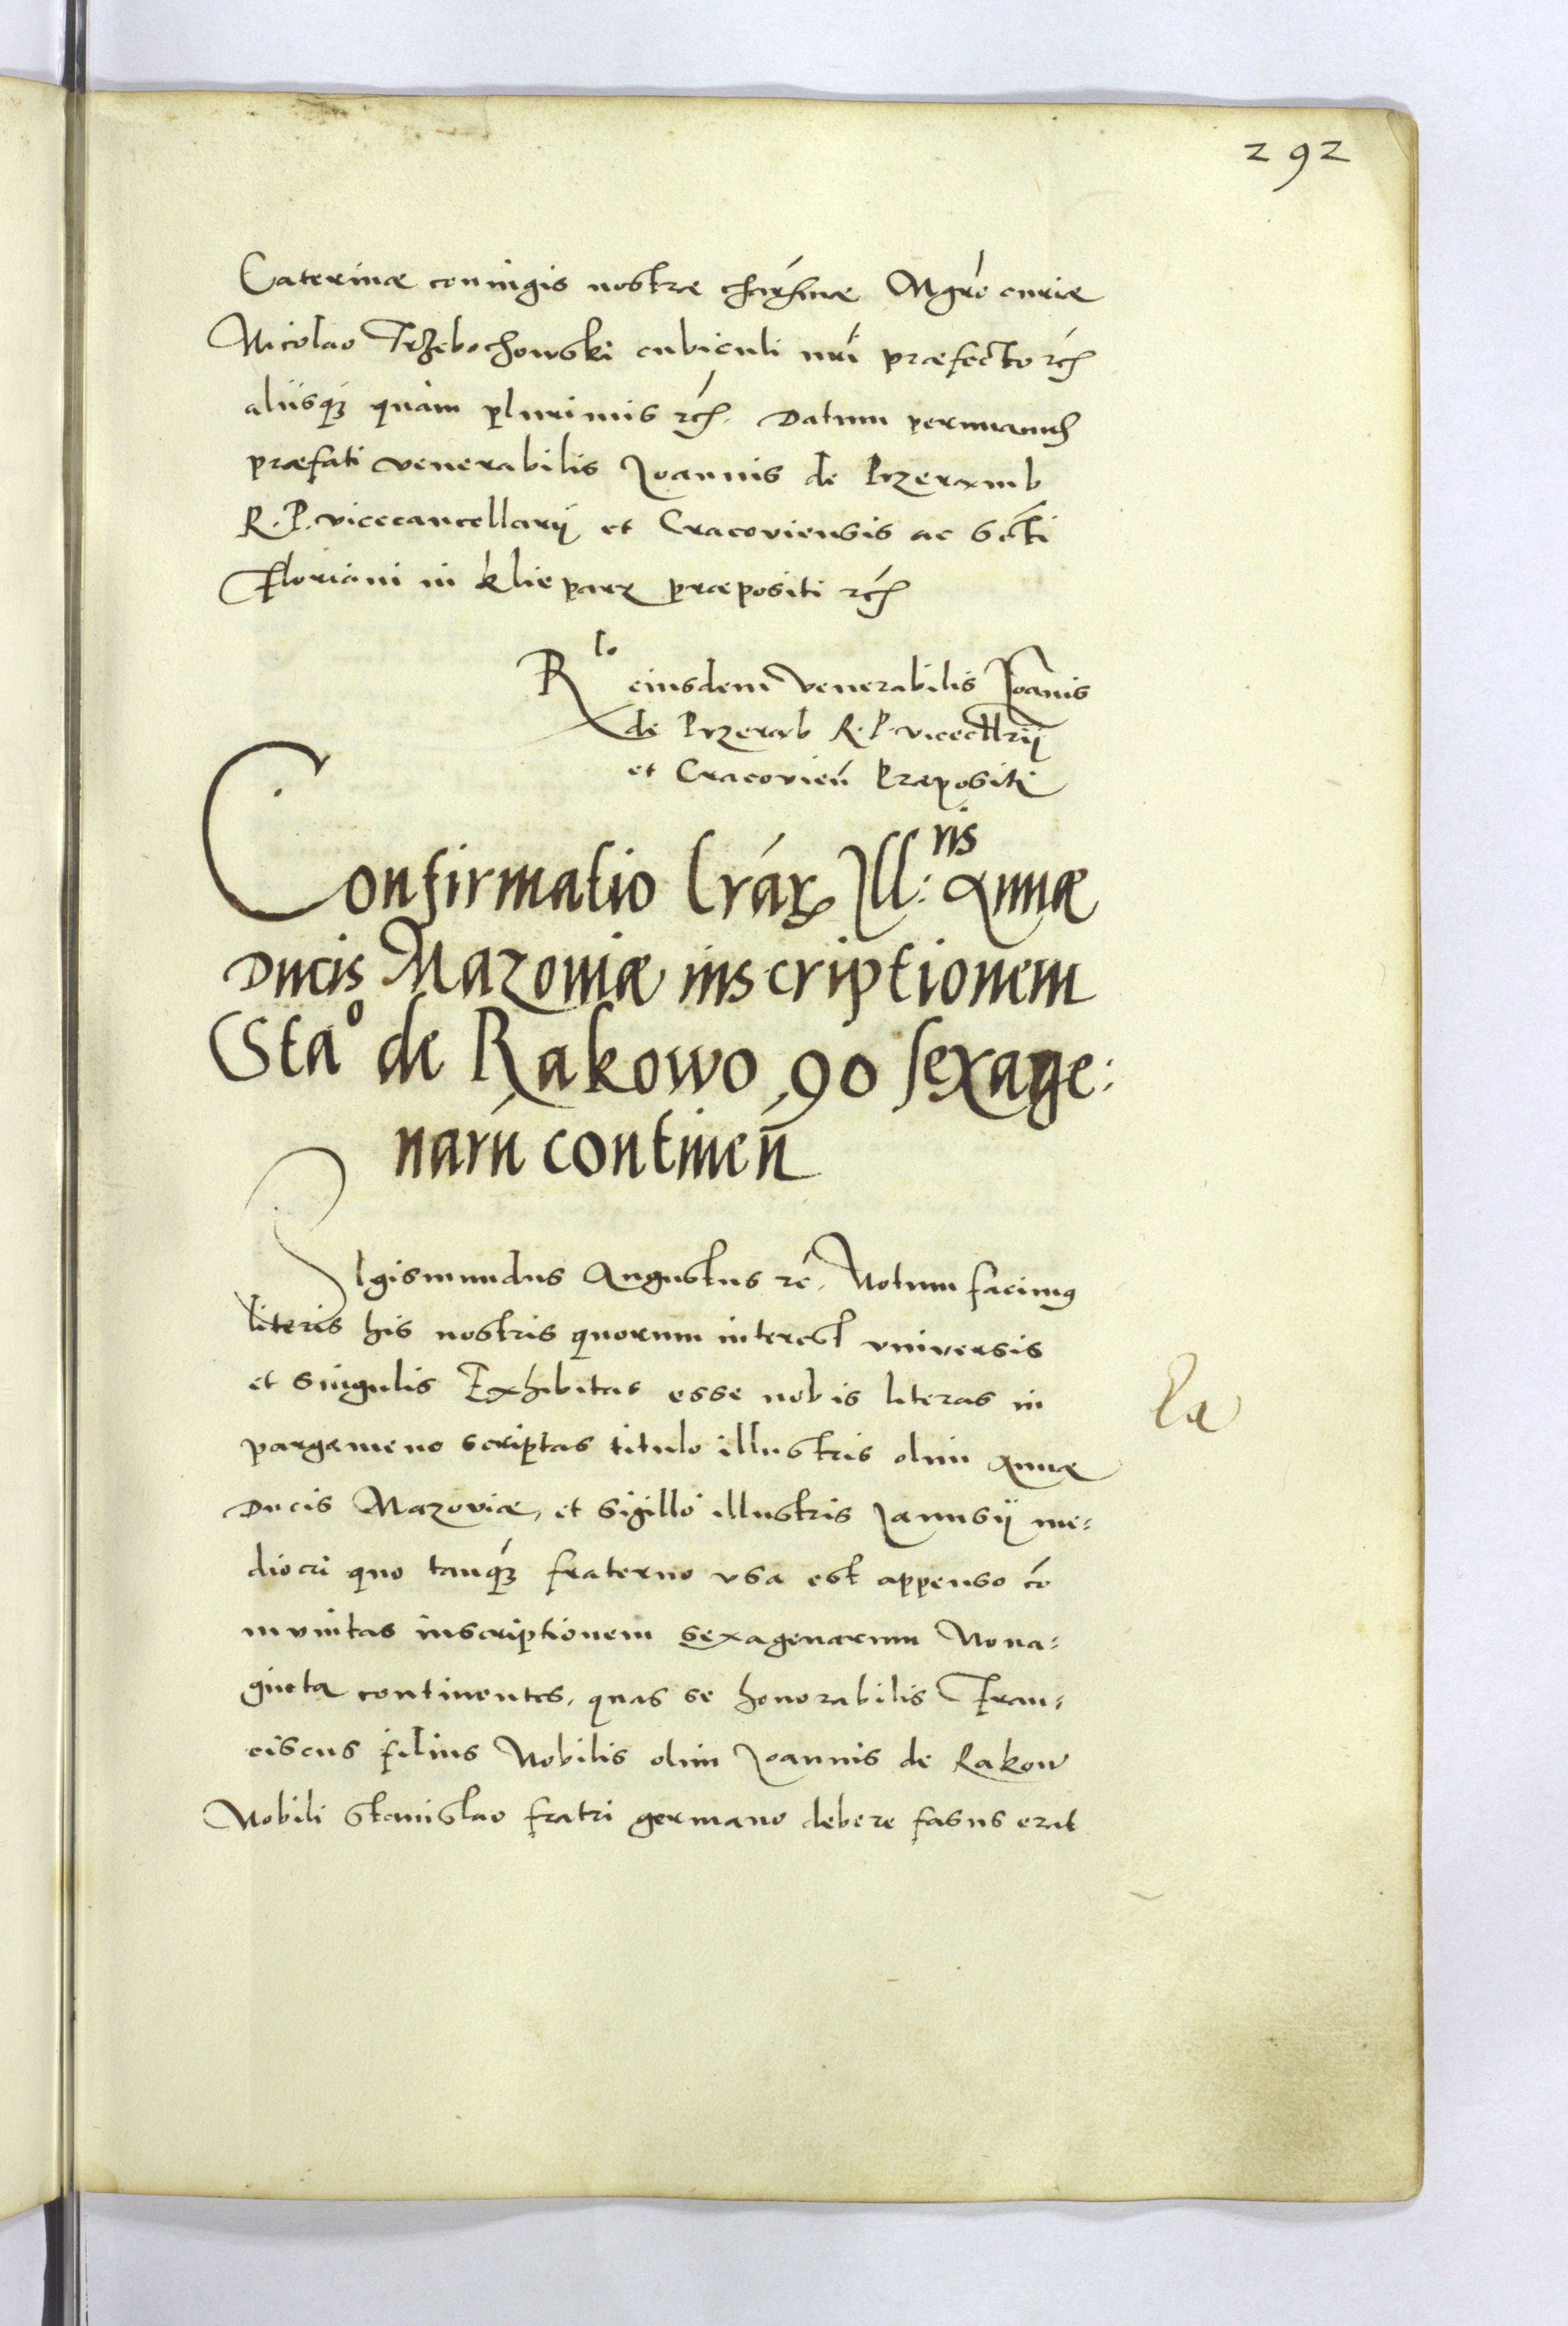 292
Caterinæ coniugis nostræ charismæ Mgro curiæ
Nicolao Trzebochowski cubiculi nri præfecto etc
aliisque quàm plurimis etc. Datum per manus
præfati venerabilis Joannis de Przeramb
R. P. vicecancellarij et Cracoviensis ac Scti
Floriani in Klieparz præpositi etc
Rlo eiusdem Venerabilis Joanis
de Przerab R. P. vicecllrij
et Cracovien Præpositi
Confirmatio lrar Ill:ris Annæ
Ducis Mazoviæ inscriptionem
Stao de Rakowo 90 sexage:
naru continen
Sigismundus Augustus etc. Notum facimus
literis his nostris quorum interest vniversis
et singulis Exhibitas esse nobis literas in
La
pargameno scriptas titulo illustris olim Annæ
Ducis Mazoviæ, et sigillo illustris Janusij me:
diocri quo tanque fraterno vsa est appenso co
mvnitas inscriptionem sexagenarum Nona:
ginta continentes, quas se honorabilis Fran:
ciscus filius Nobilis olim Joannis de Rakow
Nobili Stanislao fratri germano debere fasus erat